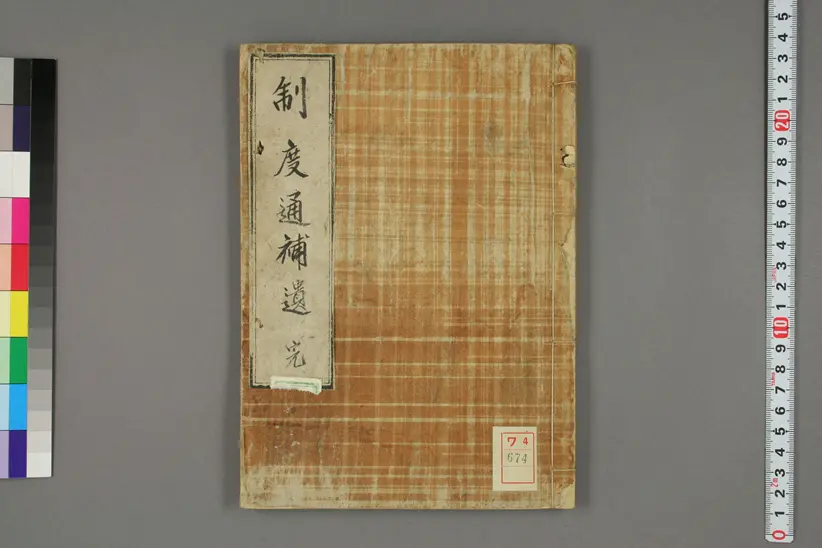 制度通補遺 完
ワ 4
674
5
4
3
2
1
20
9
8
7
6
5
4
3
2
1
10
9
8
7
6
5
4
3
2
1
0